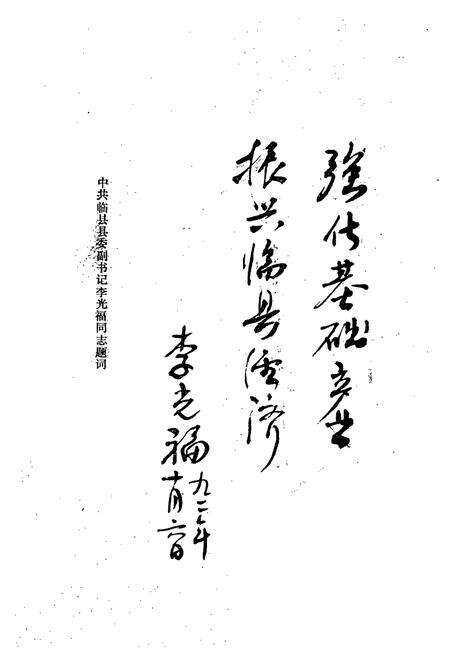 强化基础产业
振兴临县经济
李光福
九二年
中共临县县委副书记李光福同志题词